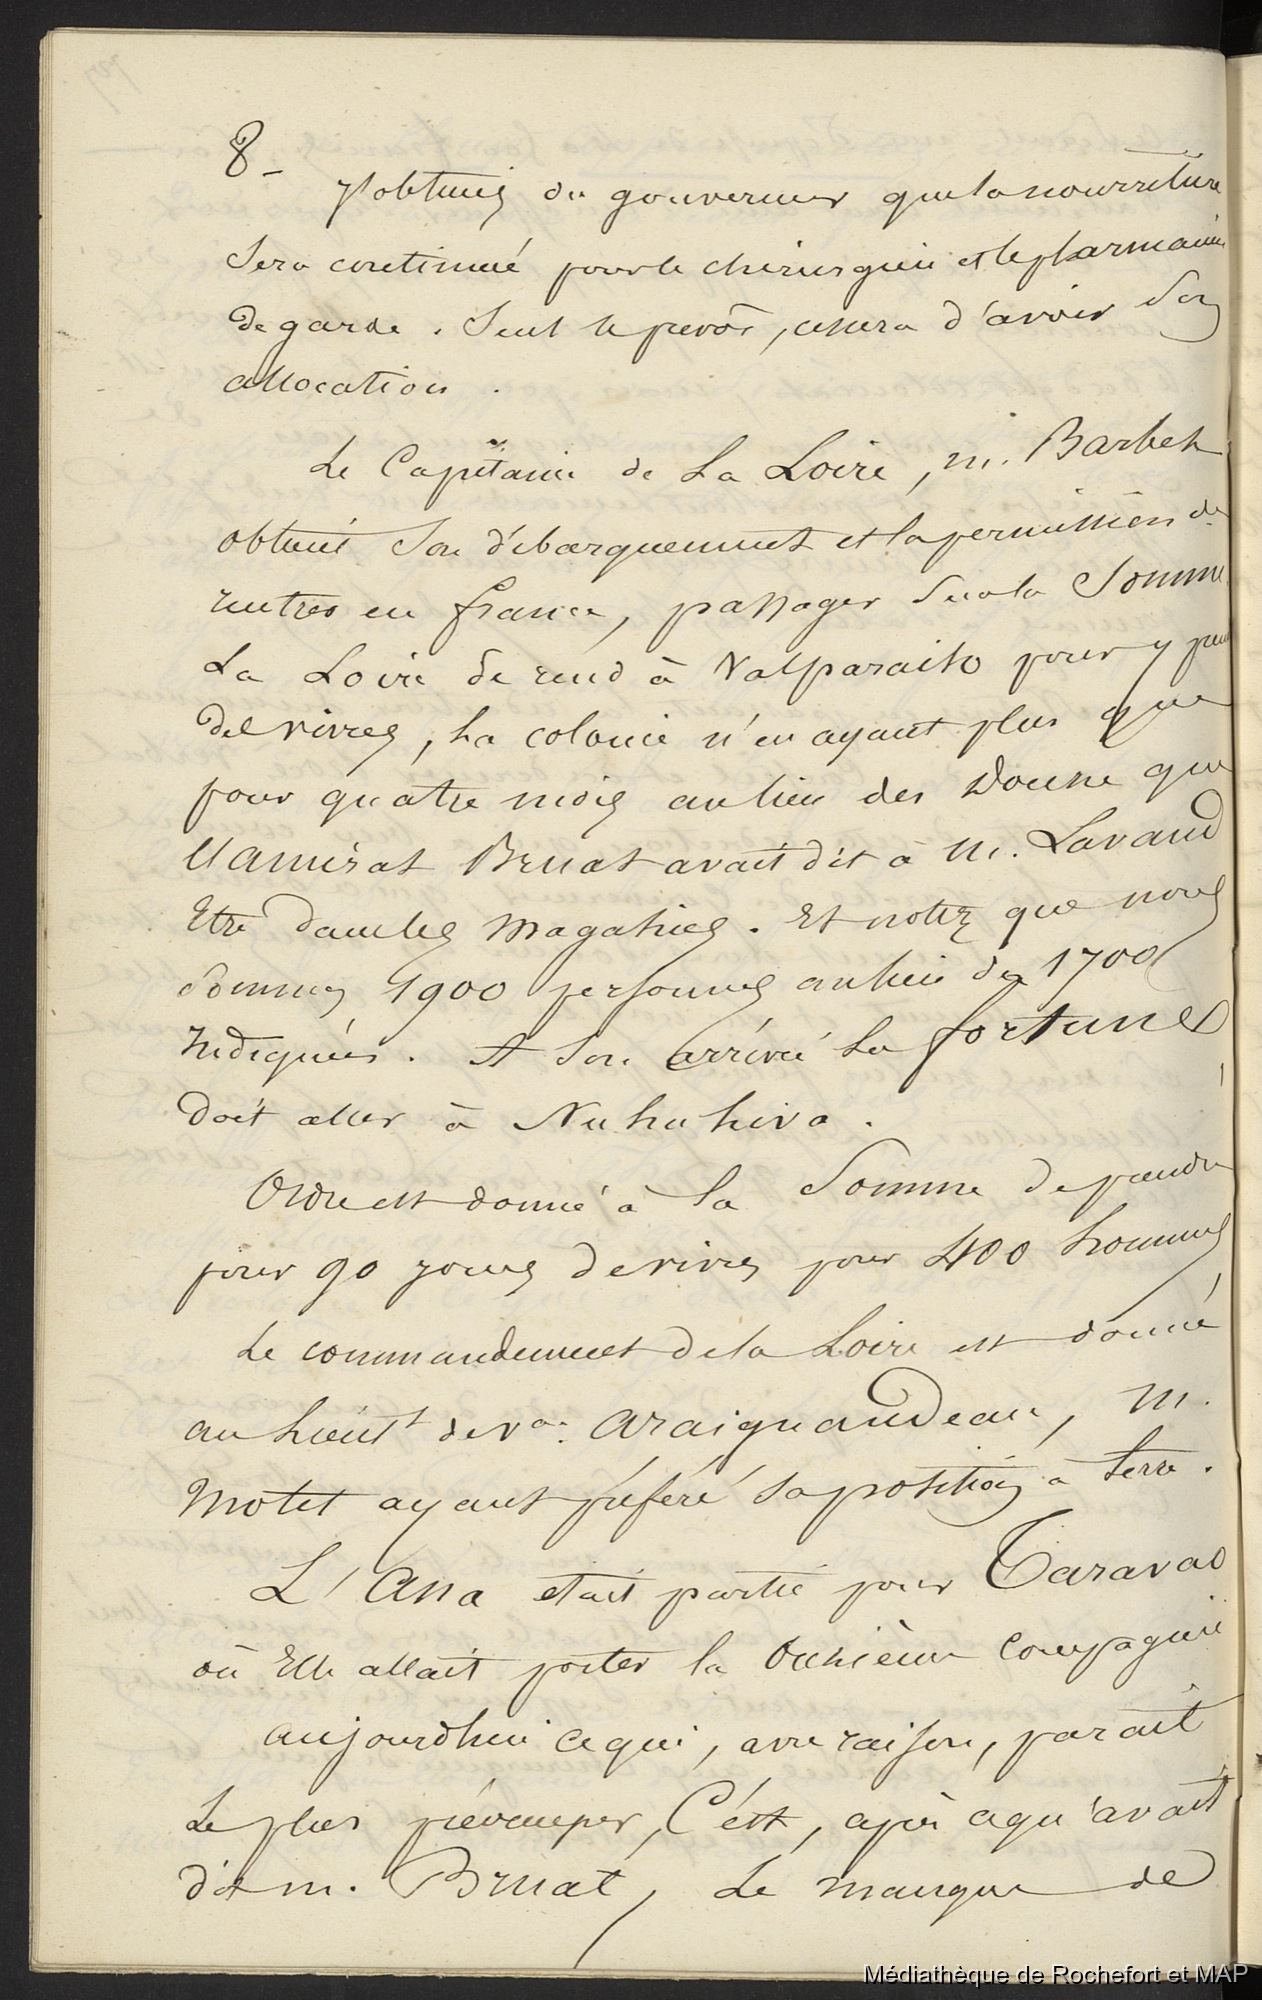 8 -
J'obtiens du gouverneur que la nourriture
sera continué pour le chirurgien et le pharmacien
de garde. Seul le prevôt, cessera d'avoir son
allocation.
Le Capitaine de La Loire, m. Barbet
obtient son débarquement et la permission de
rentrer en france, passager sur la Somme
La Loire se rend à Valparaiso pour y
des vivres, La colonie n'en ayant plus que
pour quatre mois au lieu des Douze que
l'amiral Bruat avait dit à M. Lavaud
Etre dans les Magasins. Et notez que nous
Sommes 1900 personnes au lieu des 1700
Indiqués. A son arrivée La fortune
doit aller à Nukuhiva.
Ordre est donné à La Somme de prendre
pour 90 jours de vivres pour 400 hommes
Le commandement de la Loire est donné
au Lieut de vau Araignaudeau, M.
Motet ayant préféré sa position à terre.
L'Ana etait partie pour Taravao
où Elle allait porter la Onzième Compagnie
aujourdhui ce qui, avec raison, parait
Le plus préocuper, C'est, après ce qu'avait
dit m. Bruat, Le manque de
Médiathèque de Rochefort et MAP